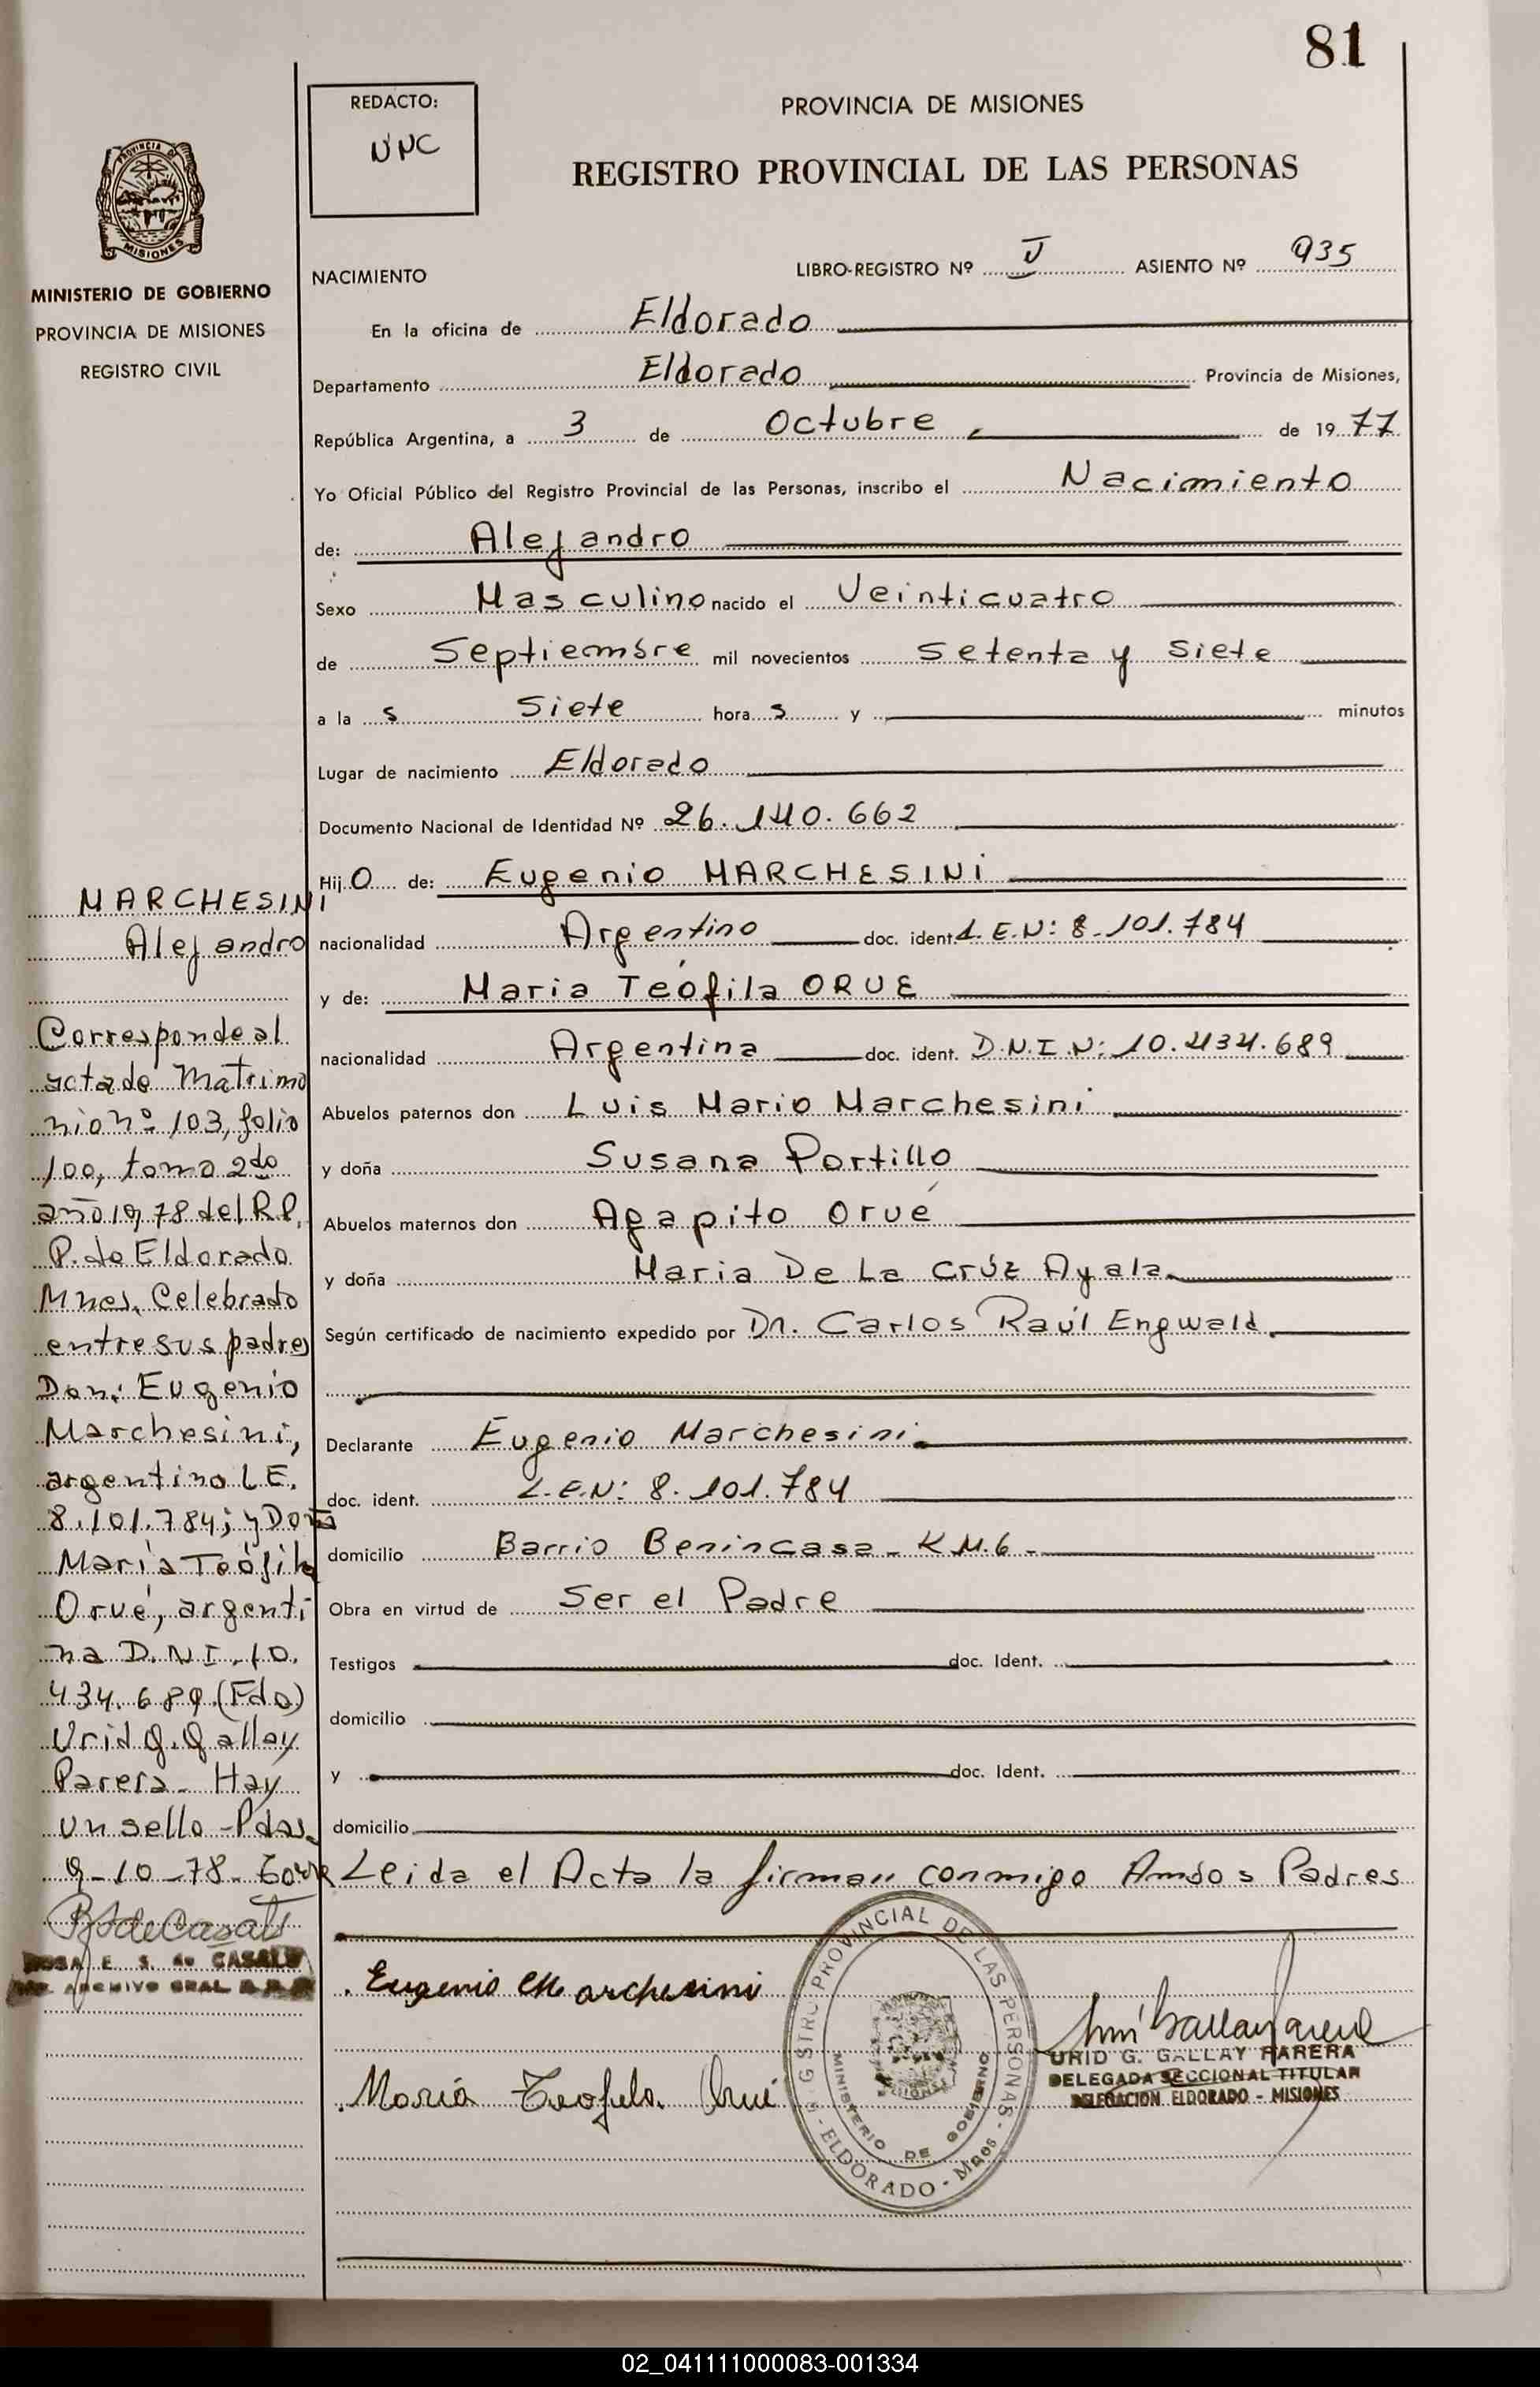 81
REDACTO:
PROVINCIA DE MISIONES
REGISTRO PROVINCIAL DE LAS PERSONAS
PROVINCIA DE
MISIONES
MINISTERIO DE GOBIERNO
PROVINCIA DE MISIONES
REGISTRO CIVIL
NACIMIENTO
LIBRO-REGISTRO Nº V ASIENTO Nº 935
En la oficina de Eldorado
Departamento Eldorado Provincia de Misiones,
República Argentina, a 3 de Octubre, de 1977
Yo Oficial Público del Registro Provincial de las Personas, inscribo el Nacimiento
de: Alejandro
Sexo Masculino nacido el Veinticuatro
de Septiembre mil novecientos Setenta y Siete
a la s Siete hora s y minutos
Lugar de nacimiento Eldorado
Documento Nacional de Identidad Nº 26.140.662
Hij O de: Eugenio MARCHESINI
nacionalidad Argentino doc. ident L.E.N: 8.101.784
y de: Maria Teófila ORUE
nacionalidad Argentina doc. ident. D.N.I.N: 10.434.689
Abuelos paternos don Luis Mario Marchesini
y doña Susana Portillo
Abuelos maternos don Agapito Orué
y doña Maria De La Crúz Ayala.
Según certificado de nacimiento expedido por Dr. Carlos Raúl Engwald.
Declarante Eugenio Marchesini.
doc. ident. L.E.N: 8.101.784
domicilio Barrio Benincasa - K M.6 -
Obra en virtud de Ser el Padre
Testigos doc. Ident.
domicilio
y doc. Ident.
domicilio
Leida el Acta la firman conmigo Ambos Padres
Eugenio Marchesini
María Teofila Orué
MARCHESINI
Alejandro
Corresponde al
acta de Matrimo
nio nº 103, folio
100, tomo 2do
año 1978 del R.P.
P. de Eldorado
Mnes. Celebrado
entre sus padres
Don: Eugenio
Marchesini,
argentino L.E.
8.101.784; y Doña
María Teófila
Orué, argenti
na D.N.I. 10.
434.689.(Fdo)
Urid G. Gallay
Parera - Hay
un sello - Pdas.
9-10-78.
ROSA E. S. de CASALS
ARCHIVO GRAL
REGISTRO PROVINCIAL DE LAS PERSONAS
MINISTERIO DE GOBIERNO
ELDORADO - Mnes
URID G. GALLAY PARERA
DELEGADA SECCIONAL TITULAR
DELEGACION ELDORADO - MISIONES
02_041111000083-001334